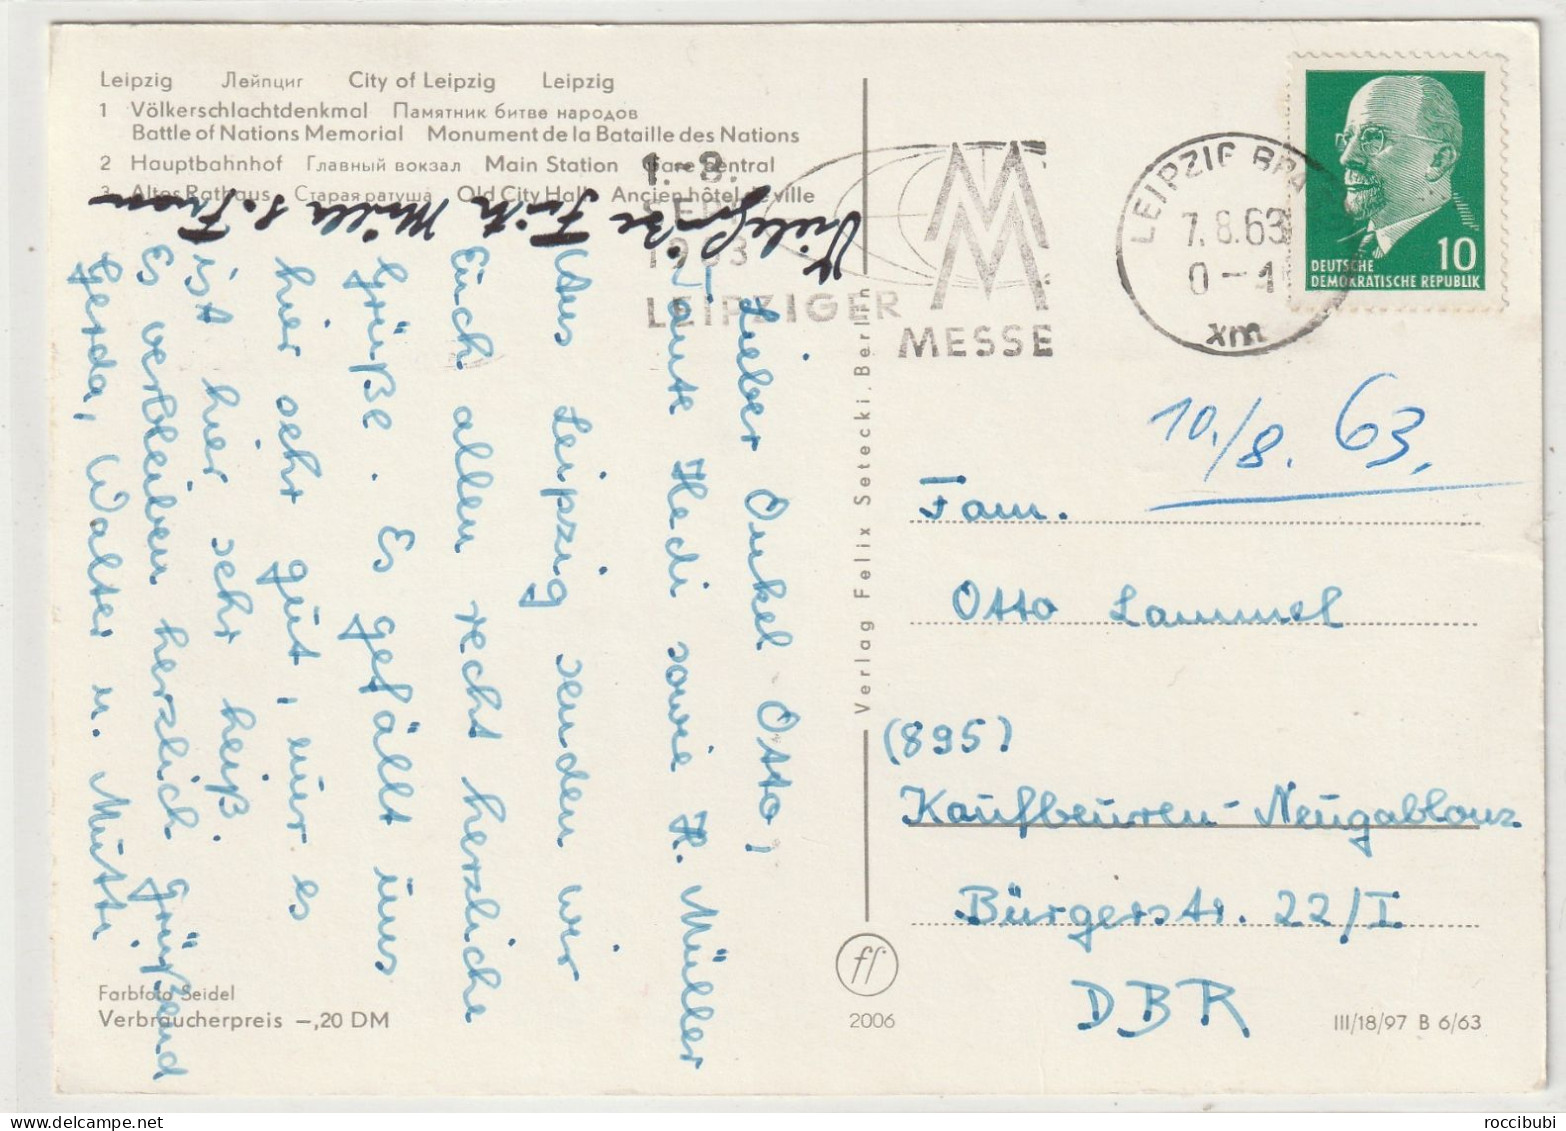 Leipzig Лейпциг City of Leipzig Leipzig
1 Völkerschlachtdenkmal Памятник битве народов
Battle of Nations Memorial Monument de la Bataille des Nations
2 Hauptbahnhof Главный вокзал Main Station Gare Central
3 Altes Rathaus Старая ратуша Old City Hall Ancien hôtel de ville
1.-8.
SEPT
1963
LEIPZIGER
MM
MESSE
LEIPZIG BPA
7.8.63
xm
10
DEUTSCHE
DEMOKRATISCHE REPUBLIK
10./8. 63.
Lieber Onkel Otto,
Tante Hedi sowie H. Müller
Aus Leipzig senden wir
Euch allen recht herzliche
Grüße. Es gefällt uns
hier sehr gut, nur es
ist hier sehr heiß.
Es verbleiben herzlich grüßend
Gerda, Walter u. Mutti
Viele Grüße Fritz Müller u. Frau
Verlag Felix Setecki, Berlin
Fam.
Otto Lammel
(895)
Kaufbeuren-Neugablonz
Bürgerstr. 22/I
DBR
Farbfoto Seidel
Verbraucherpreis –,20 DM
ff
2006
III/18/97 B 6/63
roccibubi